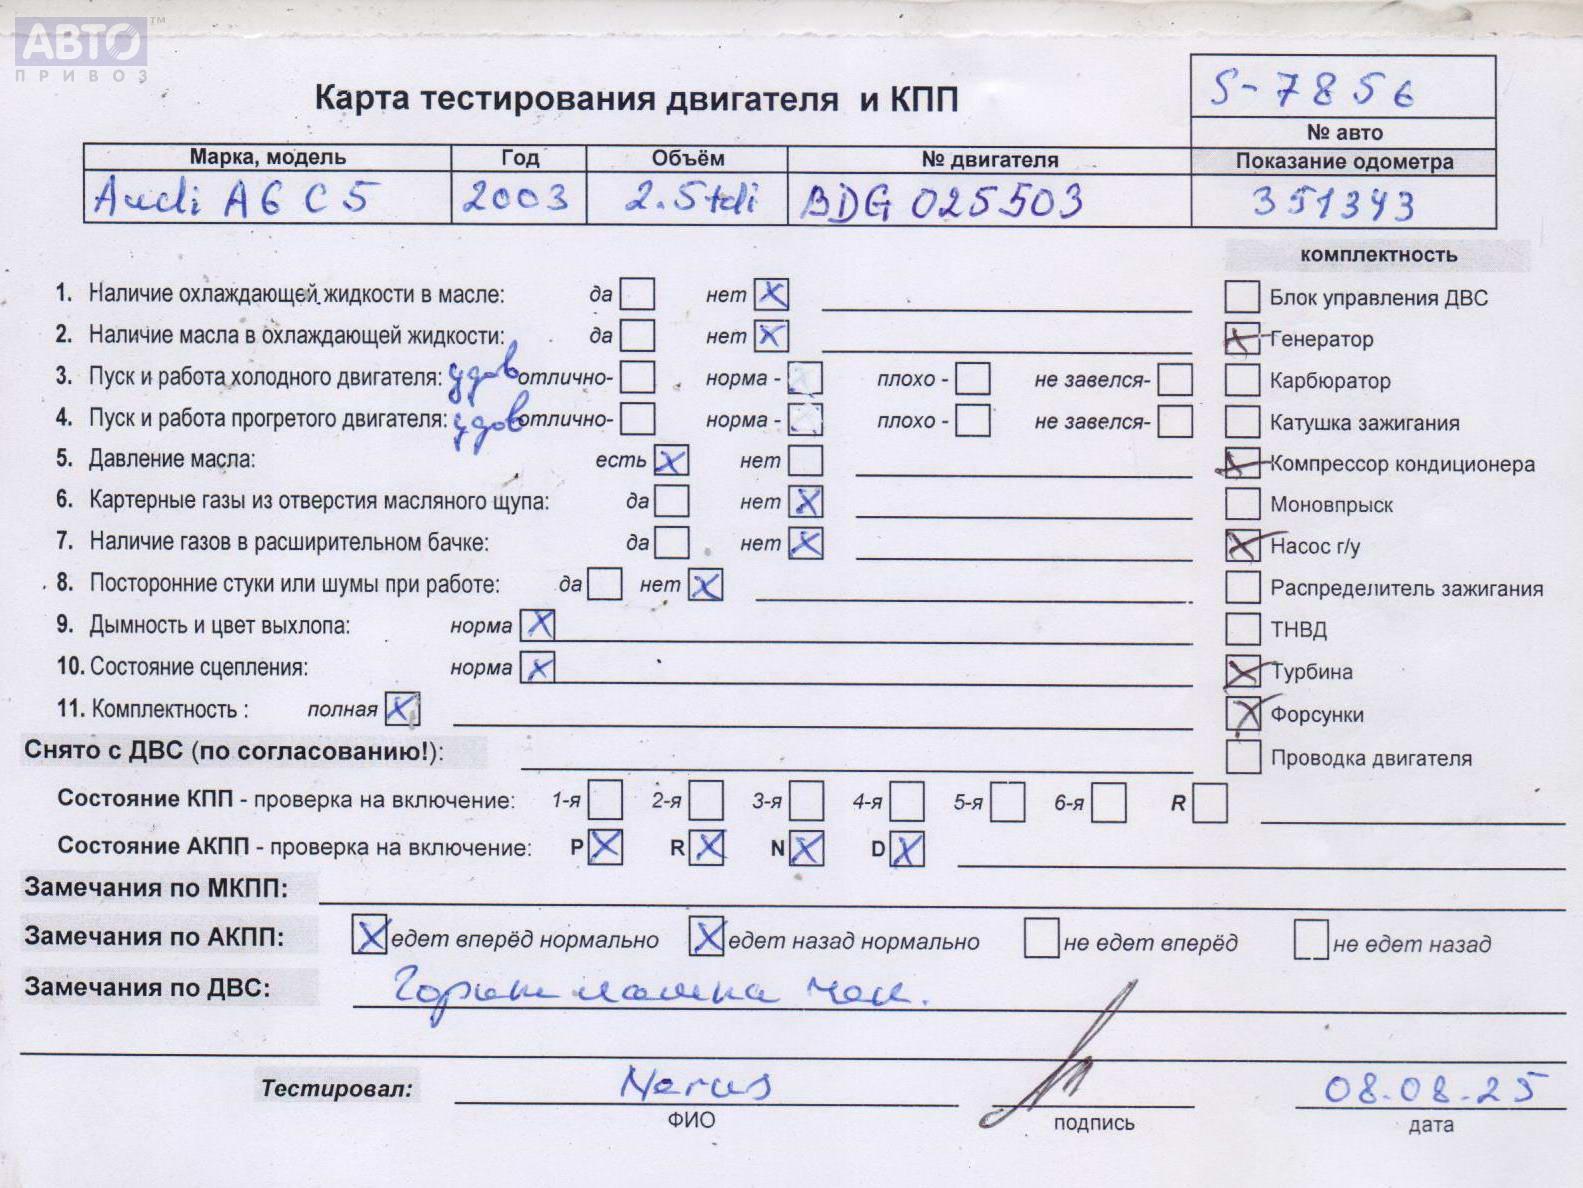 АВТО™
ПРИВОЗ
S-7856
Карта тестирования двигателя и КПП
№ авто
Марка, модель Год Объём № двигателя Показание одометра
Audi A6 C5 2003 2.5tdi BDG 025503 351343
комплектность
1. Наличие охлаждающей жидкости в масле: да нет X Блок управления ДВС
2. Наличие масла в охлаждающей жидкости: да нет X X Генератор
3. Пуск и работа холодного двигателя: удов отлично- норма - плохо - не завелся- Карбюратор
4. Пуск и работа прогретого двигателя: удов отлично- норма - плохо - не завелся- Катушка зажигания
5. Давление масла: есть X нет X Компрессор кондиционера
6. Картерные газы из отверстия масляного щупа: да нет X Моновпрыск
7. Наличие газов в расширительном бачке: да нет X X Насос г/у
8. Посторонние стуки или шумы при работе: да нет X Распределитель зажигания
9. Дымность и цвет выхлопа: норма X ТНВД
10. Состояние сцепления: норма X X Турбина
11. Комплектность : полная X X Форсунки
Снято с ДВС (по согласованию!): Проводка двигателя
Состояние КПП - проверка на включение: 1-я 2-я 3-я 4-я 5-я 6-я R
Состояние АКПП - проверка на включение: P X R X N X D X
Замечания по МКПП:
Замечания по АКПП: X едет вперёд нормально X едет назад нормально не едет вперёд не едет назад
Замечания по ДВС: Горит лампа чек.
Тестировал: 08.08.25
ФИО подпись дата